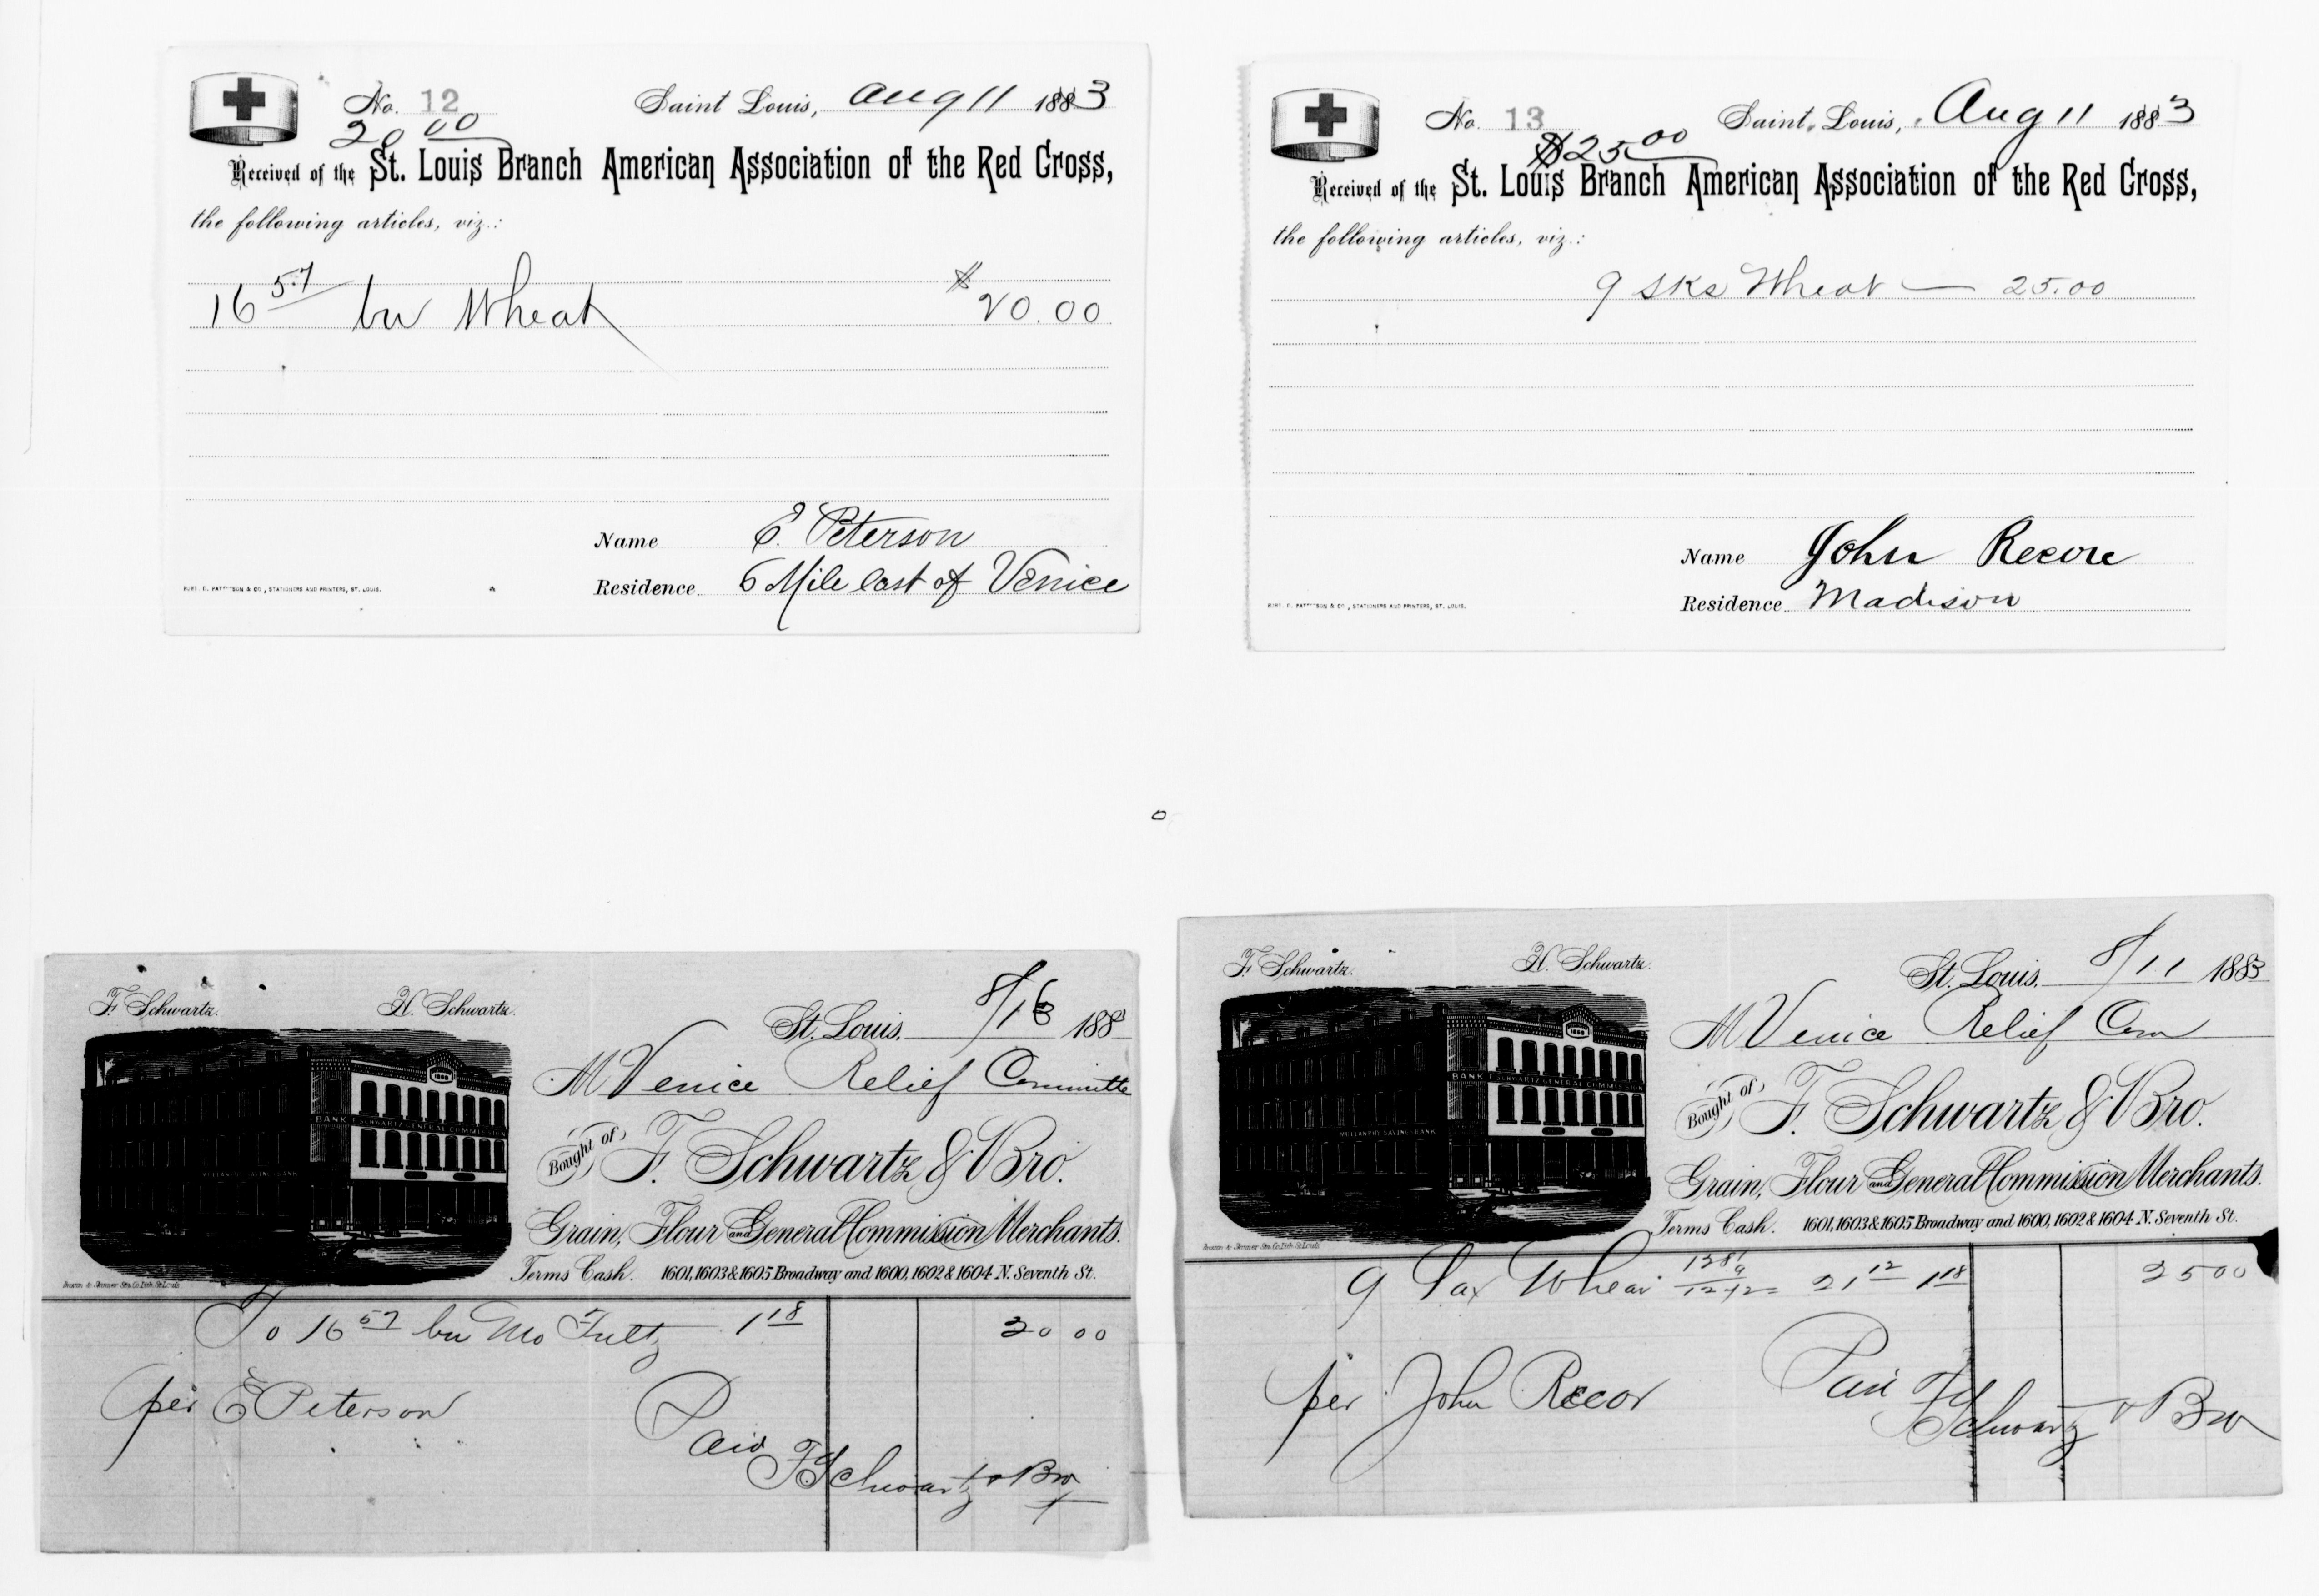 No. 12 Saint Louis, Aug 11 1883
20 00
Received of the St. Louis Branch American Association of the Red Cross,
the following articles, viz.:
16 57 bu Wheat $ 20.00
Name E. Peterson
Residence 6 Mile East of Venice
STATIONERS AND PRINTERS, ST. LOUIS.
No. 13 Saint Louis, Aug 11 1883
$25 00
Received of the St. Louis Branch American Association of the Red Cross,
the following articles, viz.:
9 sks Wheat — 25.00
Name John Recore
Residence Madison
STATIONERS AND PRINTERS, ST. LOUIS.
F. Schwartz. H. Schwartz.
St. Louis, 8/16 188
M Venice Relief Committe
BANK F. SCHWARTZ GENERAL COMMISSION
Bought of F. Schwartz & Bro.
Grain, Flour and General Commission Merchants.
Terms Cash. 1601, 1603 & 1605 Broadway and 1600, 1602 & 1604 N. Seventh St.
To 16 57 bu Mo Fultz 1 18 20 00
per E Peterson
Paid
F Schwartz & Bro
F. Schwartz. H. Schwartz.
St. Louis, 8/11 1883
M Venice Relief Com
BANK F. SCHWARTZ GENERAL COMMISSION
MULLANPHY SAVINGS BANK
Bought of F. Schwartz & Bro.
Grain, Flour and General Commission Merchants.
Terms Cash. 1601, 1603 & 1605 Broadway and 1600, 1602 & 1604 N. Seventh St.
9 Sax Wheat 21 12 1 18 25 00
per John Recor
Paid F Schwartz & Bro